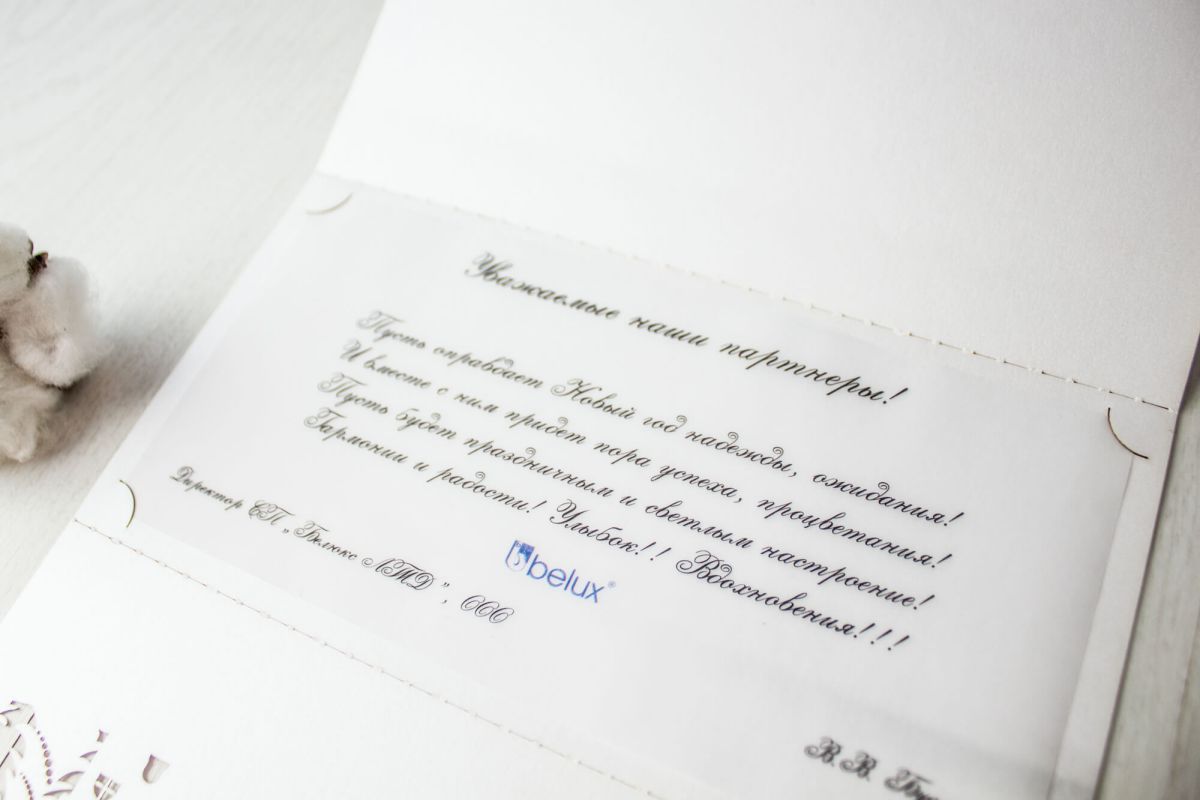 Уважаемые наши партнеры!
Пусть оправдает Новый год надежды, ожидания!
И вместе с ним придет пора успеха, процветания!
Пусть будет праздничным и светлым настроение!
Гармонии и радости! Улыбок!! Вдохновения!!!
belux®
Директор СП „Белюкс ЛТД", ООО
В.В.